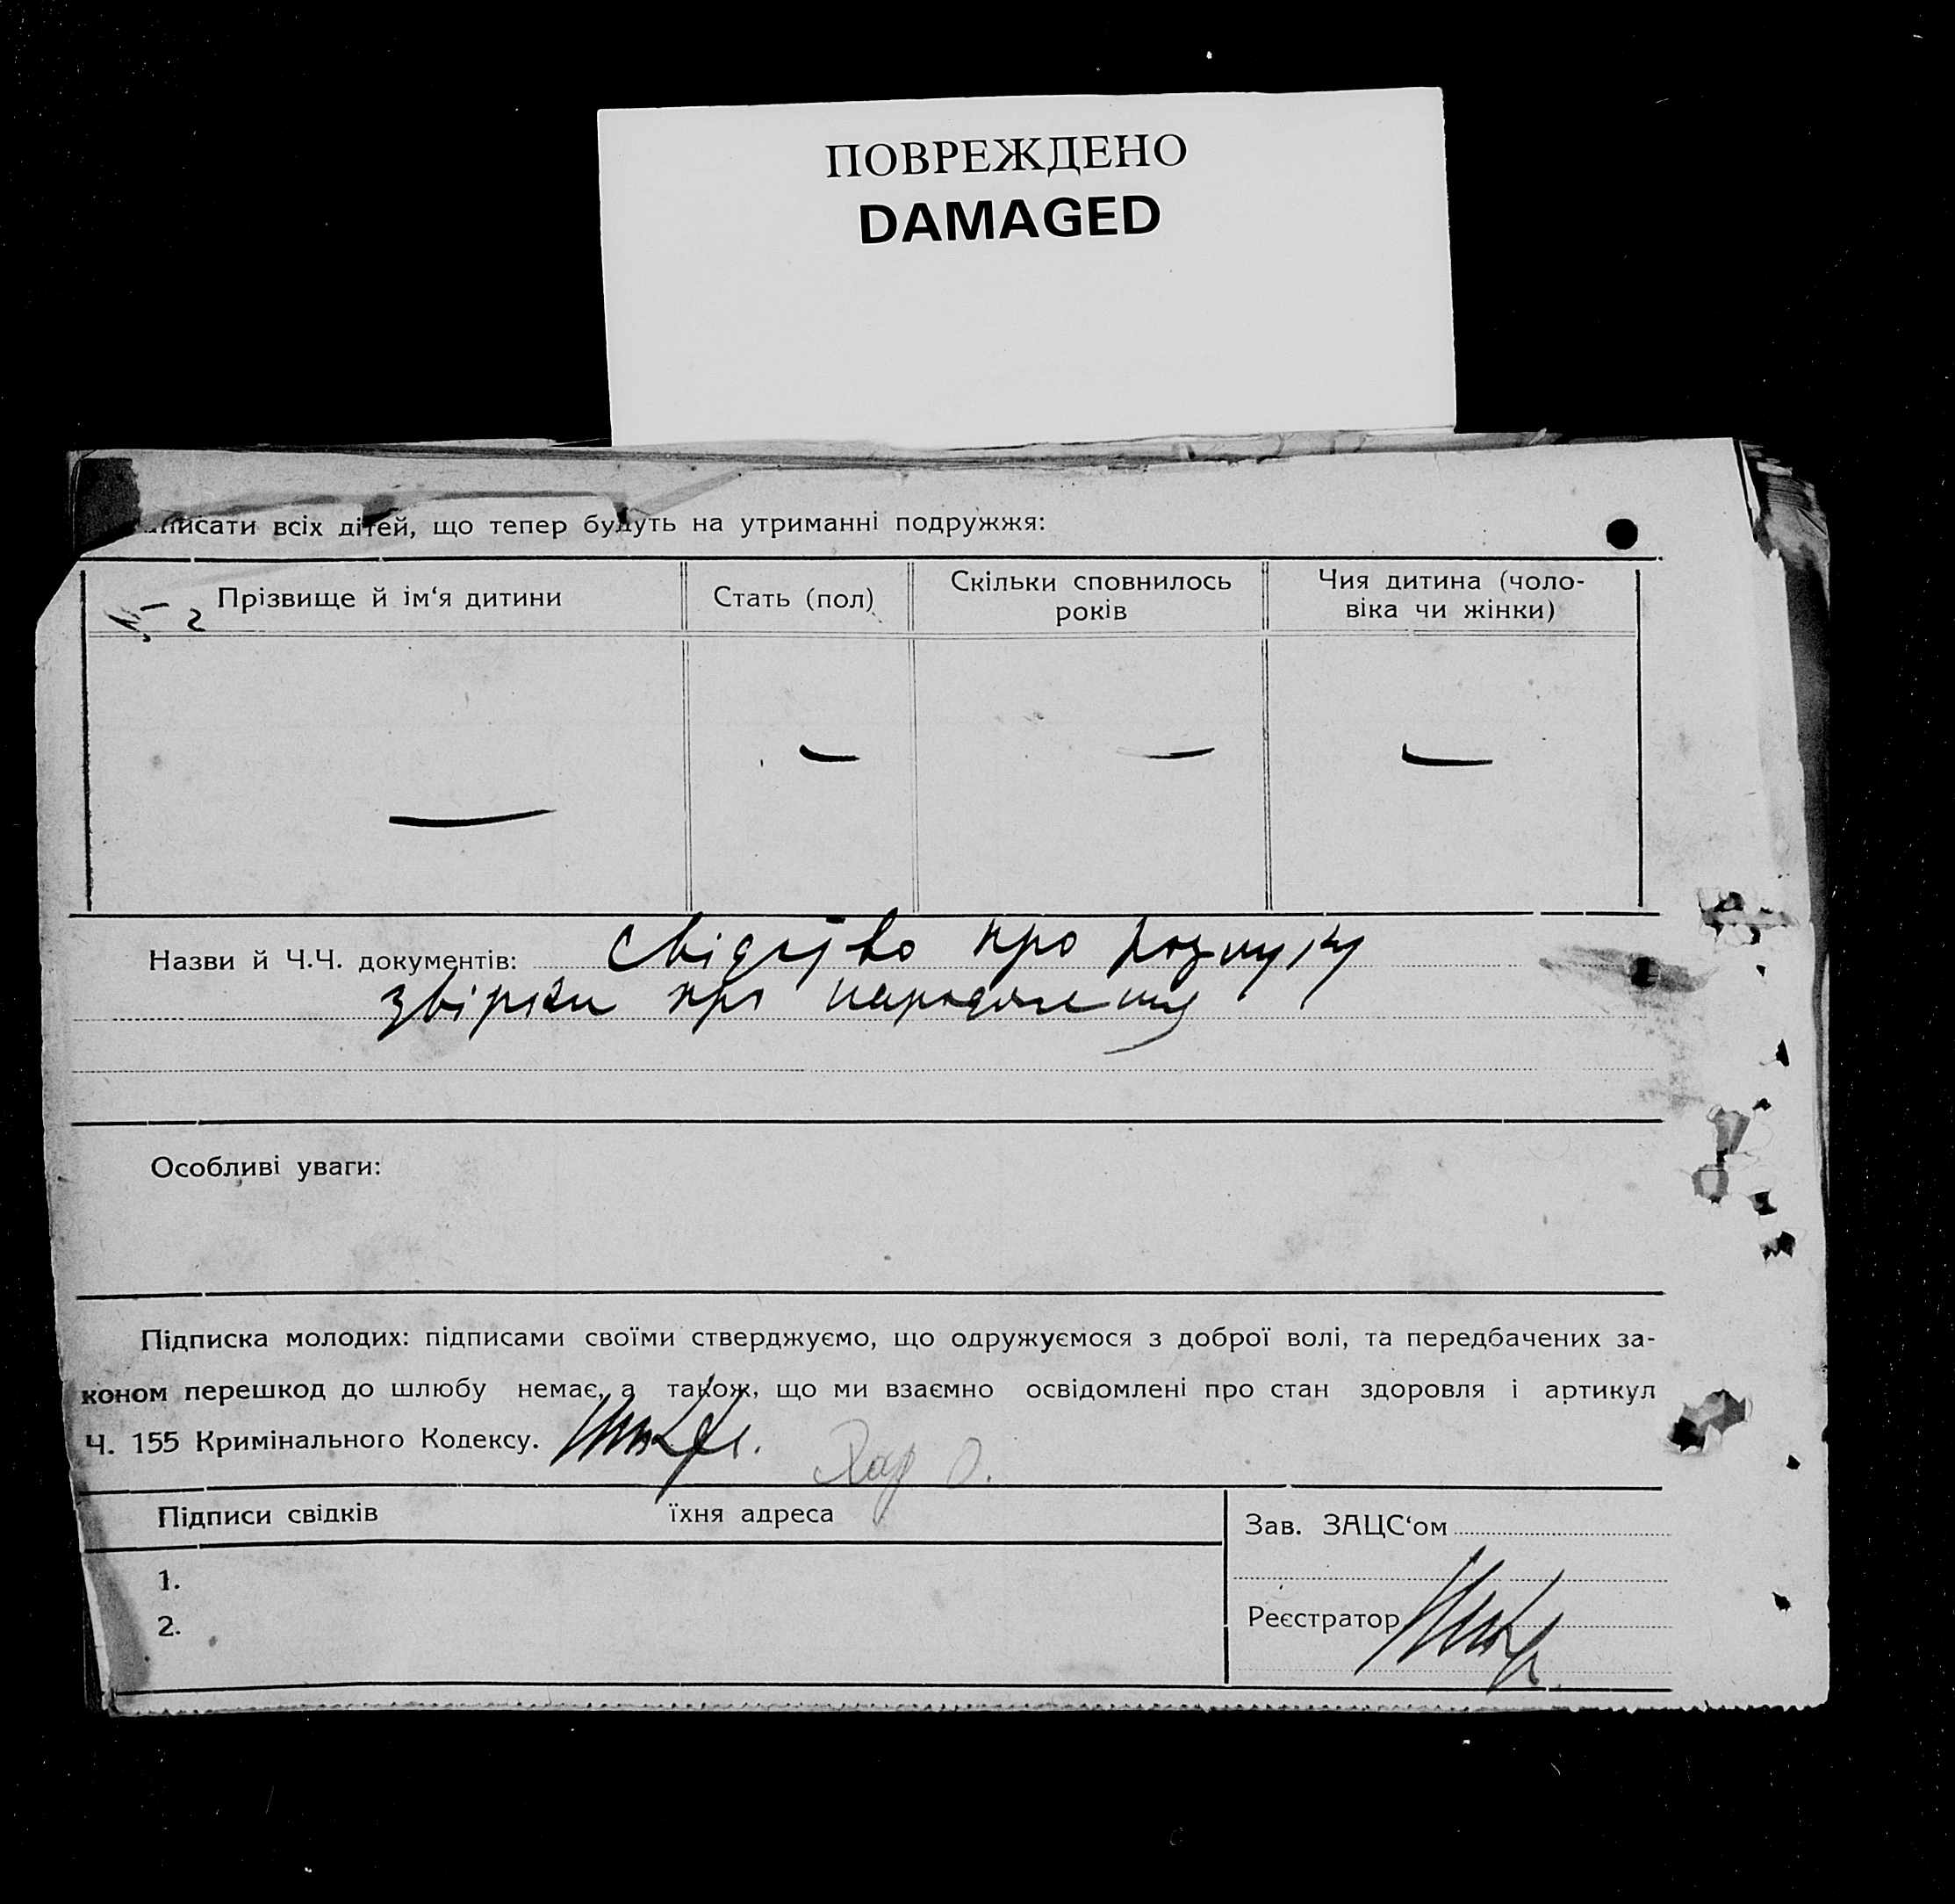 ПОВРЕЖДЕНО
DAMAGED
писати всіх дітей, що тепер будуть на утриманні подружжя:
Прізвище й ім‘я дитини
Стать (пол)
Скільки сповнилось
років
Чия дитина (чоло-
віка чи жінки)
Назви й Ч.Ч. документів: про
про
Особливі уваги:
Підписка молодих: підписами своїми стверджуємо, що одружуємося з доброї волі, та передбачених за-
коном перешкод до шлюбу немає, а також, що ми взаємно освідомлені про стан здоровля і артикул
Ч. 155 Кримінального Кодексу.
Підписи свідків їхня адреса
1.
2.
Зав. ЗАЦС‘ом
Реєстратор